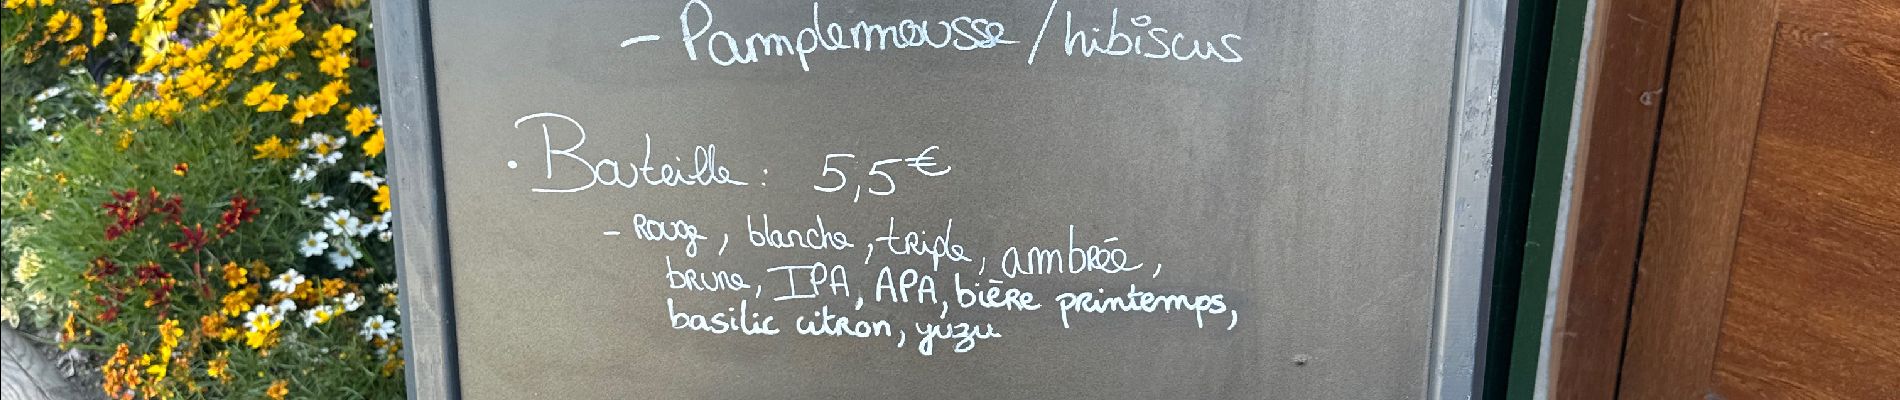 - Pamplemousse / hibiscus
• Bouteille : 5,5€
- Rouge, blanche, triple, ambrée,
brune, IPA, APA, bière printemps,
basilic citron, yuzu